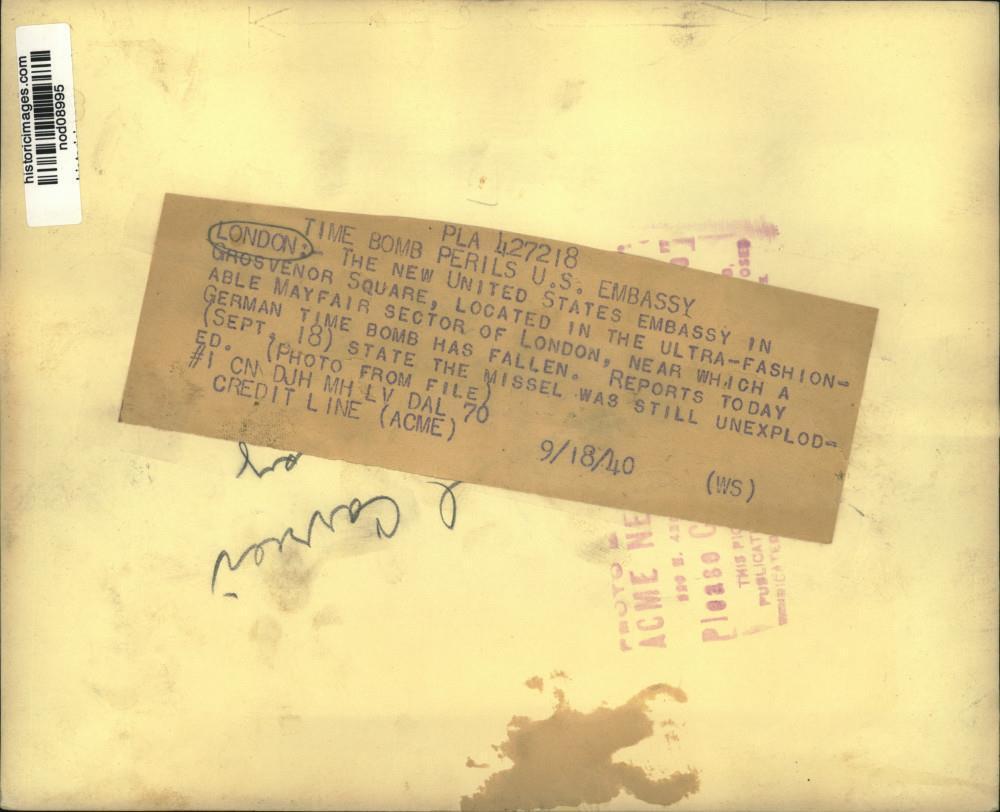 historicimages.com
nod08995
PLA 427218
TIME BOMB PERILS U.S. EMBASSY
LONDON: THE NEW UNITED STATES EMBASSY IN
GROSVENOR SQUARE, LOCATED IN THE ULTRA-FASHION-
ABLE MAYFAIR SECTOR OF LONDON, NEAR WHICH A
GERMAN TIME BOMB HAS FALLEN. REPORTS TODAY
(SEPT, 18) STATE THE MISSEL WAS STILL UNEXPLOD-
ED. (PHOTO FROM FILE)
#1 CN DJH MH LV DAL 70
CREDIT LINE (ACME)
9/18/40 (WS)
ACME NE
Please
THIS PIC
PUBLICAT